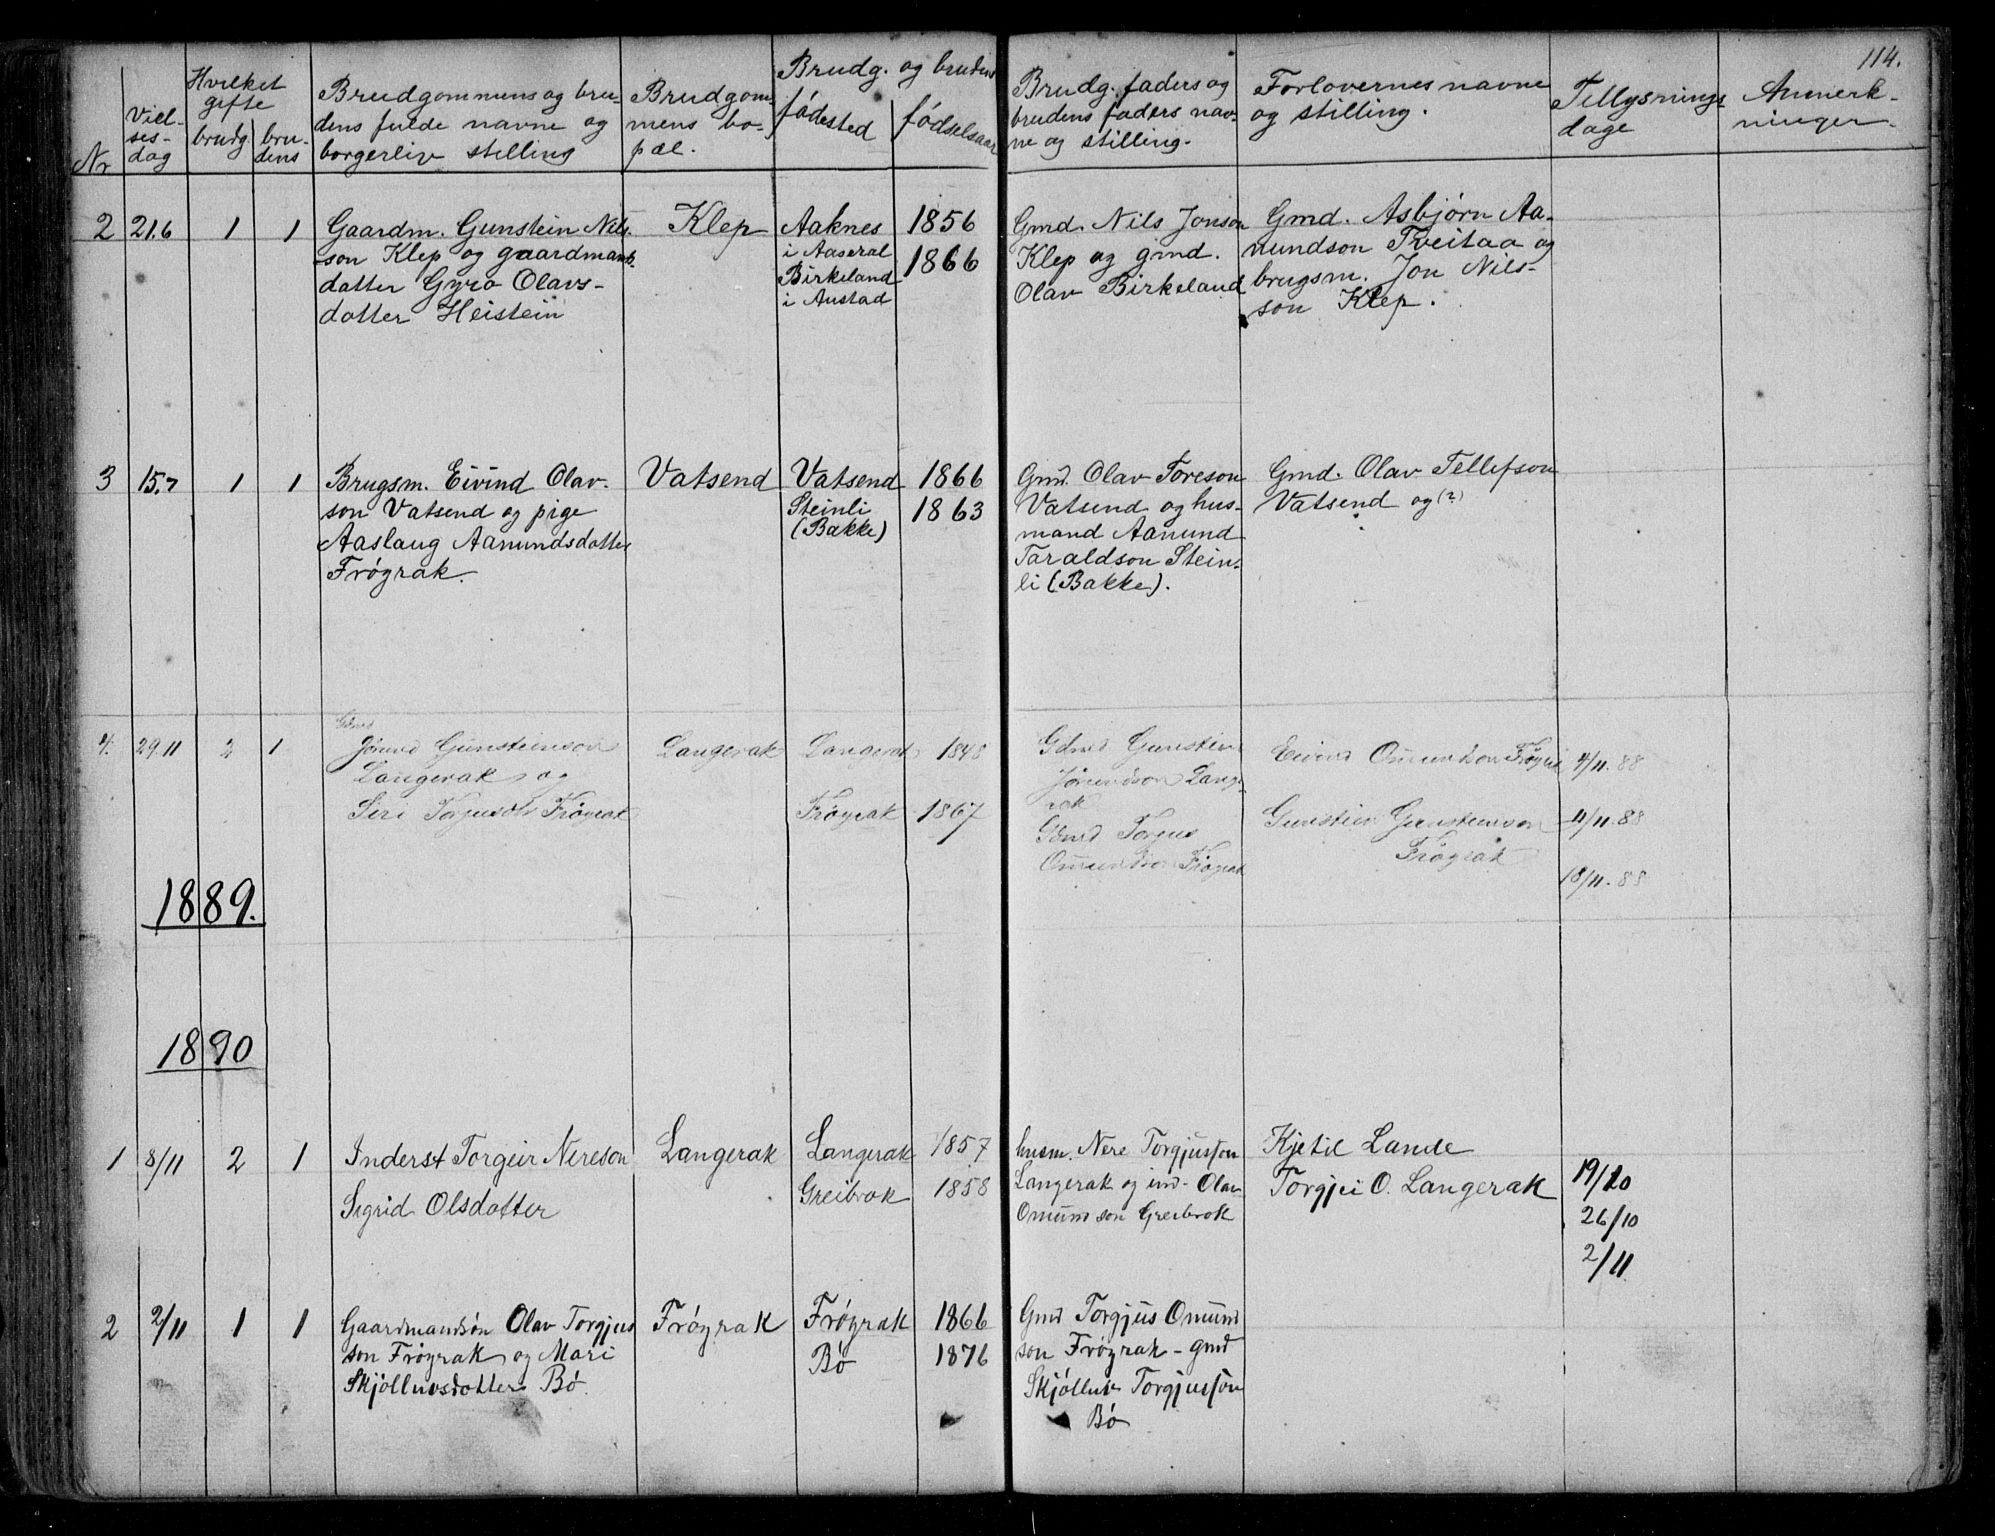 114.
Nr
Viel-
ses-
dag
Hvilket
gifte
brudg.
bru-
dens
Brudgommens og bru-
dens fulde navne og
borgerlive stilling
Brudgom-
mens bo-
pæl.
Brudg. og brudens
fødested
fødselsaar
Brudg. faders og
brudens faders nav-
ne og stilling.
Forlovernes navne
og stilling.
Tillysnings
dage
Anmerk-
ninger
2 21.6 1 1
Gaardm. Gunstein Nils-
son Klep og gaardmands-
datter Gyro Olavs-
datter Heistein
Klep
Aaknes
i Aaseral
Birkeland
i Austad
1856
1866
Gmd. Nils Jonson
Klep og gmd.
Olav Birkeland
Gmd. Asbjørn Aa-
nundson Tveitaa og
brugsm. Jon Nils-
son Klep.
3 15.7 1 1
Brugsm. Eivind Olav-
son Vatsend og pige
Aaslaug Aanundsdatter
Frøyrak.
Vatsend
Vatsend
Steinli
(Bakke)
1866
1863
Gmd. Olav Toreson
Vatsend og hus-
mand Aanund
Taraldson Stein-
li (Bakke).
Gmd. Olav Tellefson
Vatsend og (?)
4. 29.11 2 1
Gdmd
Jørund Gunsteinson
Langerak og
Siri Torjusdtr Frøyrak
Langerak
Langerak
Frøyrak
1848
1867
Gdmd Gunstein
Jørundson Lange-
rak
Gdmd Torgus
Omundson Frøyrak
Eivind Omundson Frøyrak
Gunstein Gunsteinson
Frøyrak
4/11. 88
11/11. 88
18/11. 88
1889.
1890
1 8/11 2 1
Inderst Torgeir Nereson
Sigrid Olsdatter
Langerak
Langerak
Greibrok
1857
1858
husm. Nere Torgjusson
Langerak og ind- Olav
Omundson Greibrok
Kjetil Lande
Torgjei O. Langerak
19/10
26/10
2/11
2 2/11 1 1
Gaardmandsøn Olav Torgjus
son Frøyrak og Mari
Skjølluvsdatter Bø.
Frøyrak
Frøyrak
Bø
1866
1876
Gmd Torgjus Omund
son Frøyrak - gmd
Skjølluv Torgjusson
Bø